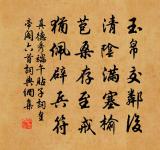 玉帛交鄰後
清陰滿塞榆
苞桑存至戒
猶佩辟兵符
真德秀端午帖子詞皇
帝閣六首詞典網集